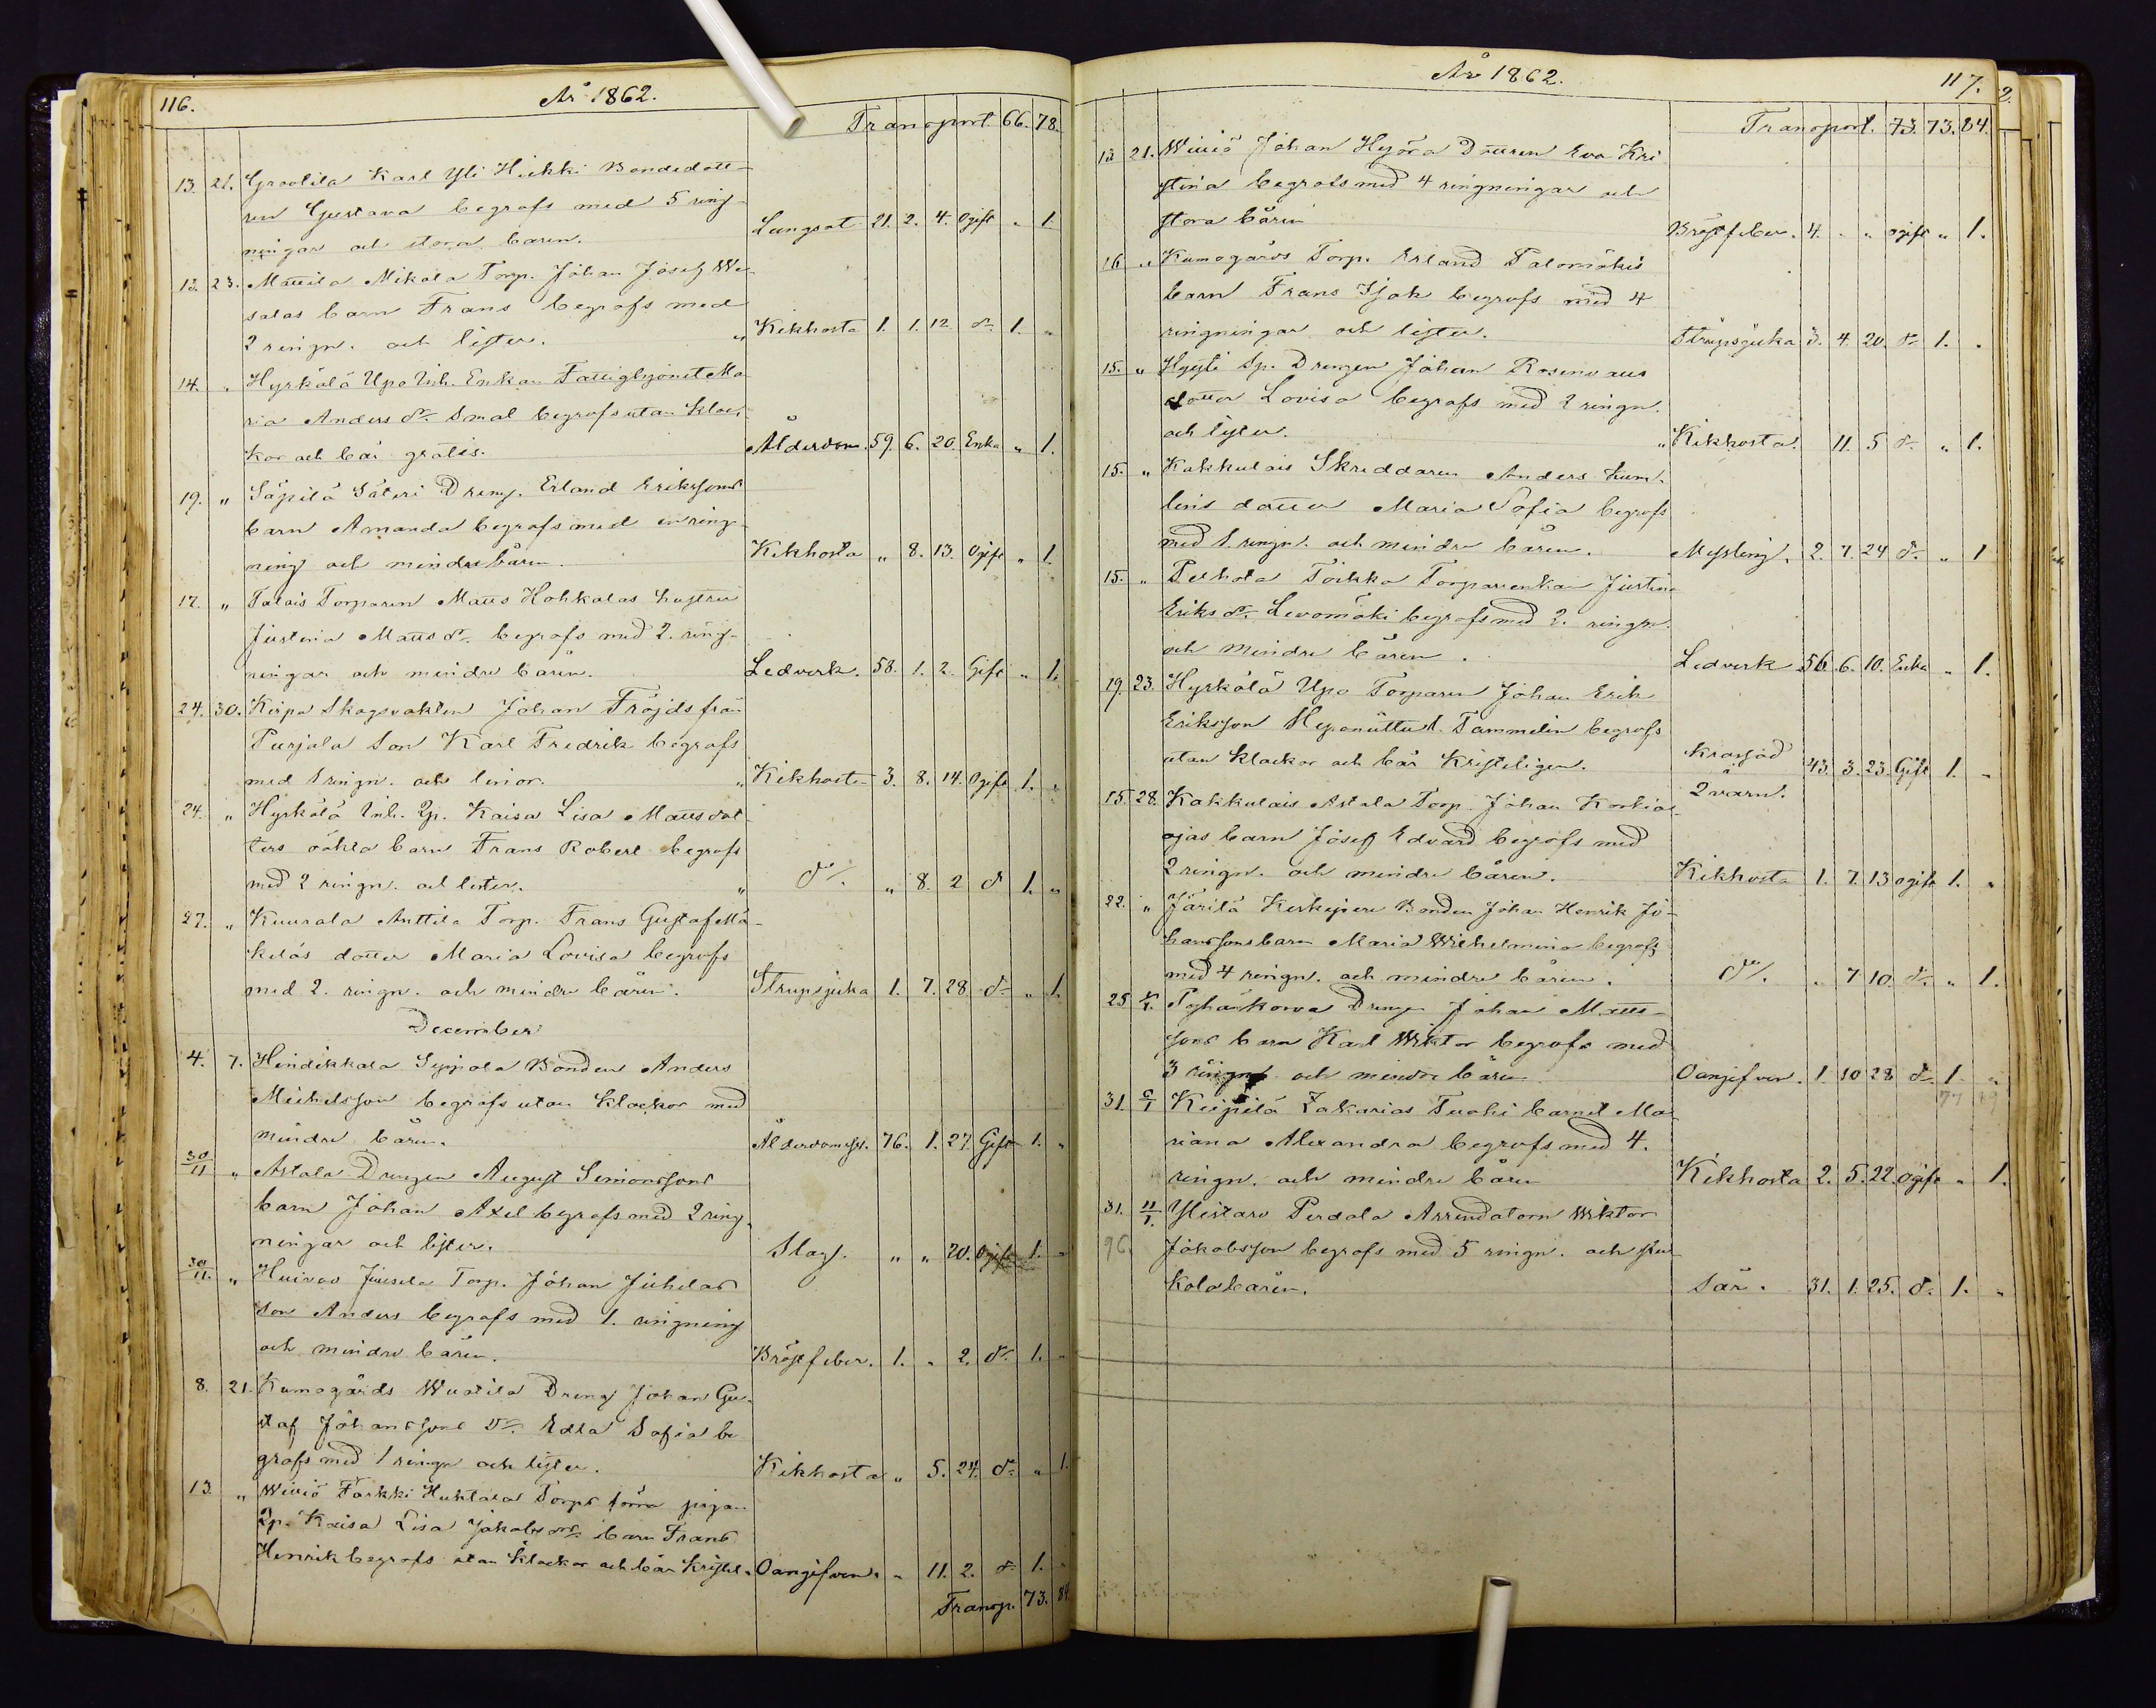 116. År 1862.
Transport. 66. 78.
13. 21. Groolila Karl Yli Heikki Bondedott-
ren Gustava begrofs med 5 ring-
ningar och stora båren. Lungsot 21. 2. 4. Ogift „ 1.
13. 23. Mattila Mikola Torp. Johan Josef We-
salas barn Frans begrofs med
2 ringn. och lister. „ Kikhosta 1. 1. 12. d:o 1. „
14. „ Hyrkölä Upo Inh. Enkan Fattighjonet Ma
ria Anders d:r Smal begrofs utan kloc-
kor och bår gratis. Ålderdom. 59. 6. 20. Enka „ 1.
19. „ Säpilä Säteri Dreng. Erland Erikssons
barn Amanda begrofs med en ring-
ning och mindre båren. Kikhosta „ 8. 13. Ogift „ 1.
17. „ Talais Torparen Matts Hohkalas hustru
Justina Matts d:r begrofs med 2. ring-
ningar och mindre båren. Ledverk. 58. 1. 2. Gift „ 1.
24. 30. Kerpu Skogsvakten Johan Fröjds från
Purjala Son Karl Fredrik begrofs
med 1 ringn. och linior. „ Kikhosta 3. 8. 14. Ogift 1. „
24. „ Hyrkölä Inh. Qp. Kaisa Lisa Mattsdot
ters oäkta barn Frans Robert begrofs
med 2 ringn. och lister. „ d:o. „ 8. 2 d:o 1. „
27. „ Kuurala Anttila Torp. Frans Gustaf Mä-
keläs dotter Maria Lovisa begrofs
med 2. ringn. och mindre båren. Strupsjuka 1. 7. 28 d:o „ 1.
December
4. 7. Hindikkala Seppola Bonden Anders
Michelsson begrofs utan klockor med
mindre båren. Ålderdomssv. 76. 1. 27. Gift 1. „
30/11 „ Astala Drengen August Simonssons
barn Johan Axel begrofs med 2 ring-
ningar och lister. Slag. „ „ 20. Ogift 1. „
30/11. „ Huivoo Jussila Torp. Johan Juhelas
Son Anders begrofs med 1. ringning
och mindre båren. Bröstfeber. 1. „ 2. d:o 1. „
8. 21. Kumogårds Wuotila Dreng Johan Gu-
staf Johanssons D:r Edla Sofia be
grofs med 1 ringn och lister. Kikhosta „ 5. 24. d:o „ 1.
13. „ Wiviö Farkki Huhtala Torps förra pigan
Qp. Kaisa Lisa Jakobs dr. barn Frans
Henrik begrofs utan klockor och bår Kristel. Oangifven. „ 11. 2. d:o 1. „
Transp. 73. 84.
År 1862. 117.
Transport. 73. 73. 84.
13 21. Wiviö Johan Hyöra Dottren Eva Kri
stina begrofs med 4 ringningar och
stora båren Bröstfeber. 4. „ „ ogift „ 1.
16 „ Kumogårds Torp. Erland Palomäkis
barn Frans Isak begrofs med 4
ringningar och lister. Strupsjuka 3. 4. 20. d:o 1. „
15. „ Hyyti Sp. Drengen Johan Rosenvaus
dotter Lovisa begrofs med 2 ringn.
och lister. „ Kikhosta. 11. 5 d:o „ 1.
15. „ Kakkulais Skreddaren Anders Kum-
lins dotter Maria Sofia begrofs
med 1. ringn. och mindre båren. Messling. 2. 7. 24 d:o „ 1
15. „ Perhola Töikko Torparenkan Justina
Eriks d:r Levomäki begrofs med 2. ringn.
och mindre båren. Ledverk 56. 6. 10. Enka „ 1.
19 23. Hyrkölä Upo Torparen Johan Erik
Eriksson Heponiittu l. Tammelin begrofs
utan klockor och bår Kristeligen. 43. 3. 23. Gift 1. „
15. 28. Kakkulais Astala Torp. Johan Korkia-
ojas barn Josef Edvard begrofs med
2 ringn. och mindre båren. Kikhosta 1. 7. 13 ogift 1. „
22. „ Järilä Keskipere Bonden Johan Henrik Jo-
hanssons barn Maria Wilhelmina begrofs
med 4 ringn. och mindre båren. d:o. „ 7 10. d:o „ 1.
25 Drengen Johan Matts-
sons barn Karl Wiktor begrofs med
3 ringn och mindre båren Oangifven. 1. 10 28 d:o 1. „
77 89
31. 6/1 Kiipilä Zakarias Tuohi barnet Ma
riana Alexandra begrofs med 4.
ringn. och mindre båren Kikhosta 2. 5. 22. ogift „ 1.
31. 11/1. Ylistaro Perdola Arrendatorn Wiktor
96. Jakobsson begrofs med 5 ringn. och
båren. Sår. 31. 1. 25. d:o 1. „